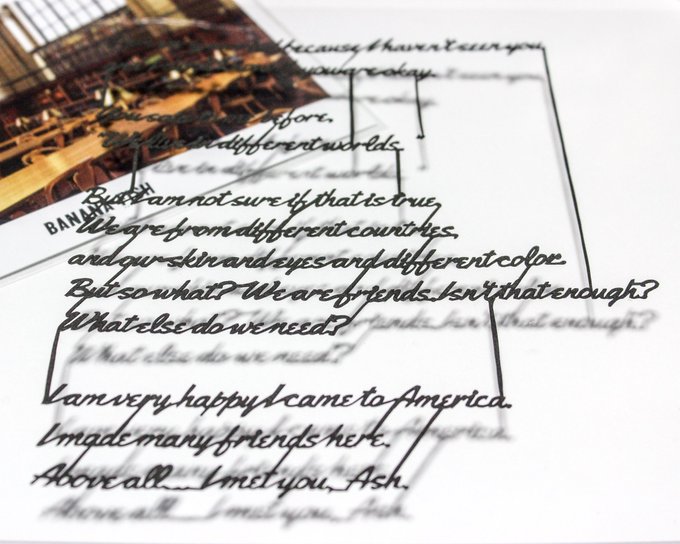 because I haven't seen you
you are okay.
You said before.
We live in different worlds.
But I am not sure if that is true,
We are from different countries,
and our skin and eyes and different color.
But so what? We are friends. Isn't that enough?
What else do we need?
I am very happy I came to America.
I made many friends here.
Above all... I met you, Ash.
BANANA FISH